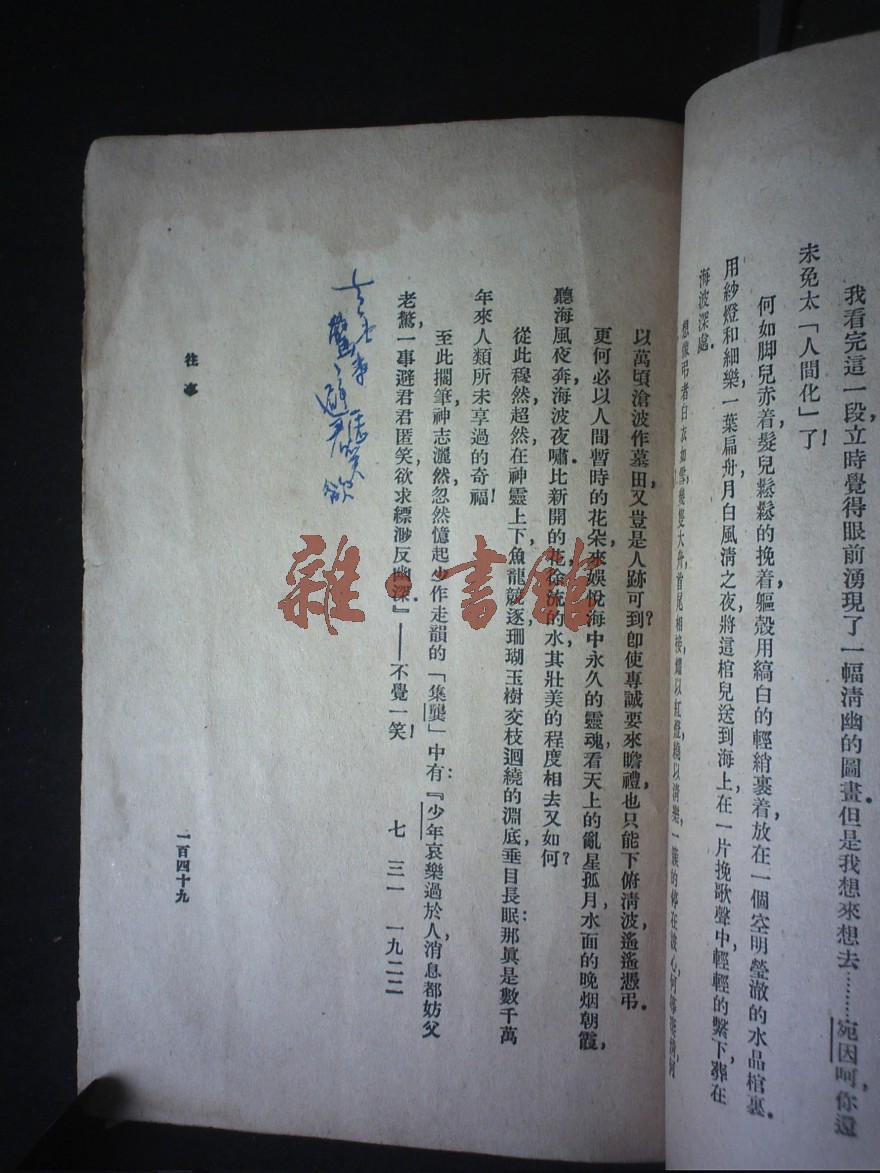 我看完這一段，立時覺得眼前湧現了一幅淸幽的圖畫。但是我想來想去………宛因呵，你還
未免太「人間化」了！
何如脚兒赤着，髮兒鬆鬆的挽着，軀殼用縞白的輕綃裹着，放在一個空明瑩澈的水晶棺裏。
用紗燈和細樂，一葉扁舟，月白風淸之夜，將這棺兒送到海上，在一片挽歌聲中，輕輕的繫下，葬在
海波深處。
想像弔者白衣如雪，幾隻大舟，首尾相接，耀以紅燈，繞以淸樂，一簇的停在波心。何等
以萬頃滄波作墓田，又豈是人跡可到？卽使專誠要來瞻禮，也只能下俯淸波，遙遙憑弔。
更何必以人間暫時的花朶，來娛悅海中永久的靈魂，看天上的亂星孤月，水面的晚烟朝霞，
聽海風夜奔，海波夜嘯。比新開的花，徐流的水，其壯美的程度相去又如何？
從此穆然，超然，在神靈上下，魚龍競逐，珊瑚玉樹交枝迴繞的淵底，垂目長眠：那眞是數千萬
年來人類所未享過的奇福！
至此擱筆，神志灑然，忽然憶起少作走韻的「集龔」中有：『少年哀樂過於人，消息都妨父
老驚，一事避君君匿笑，欲求縹渺反幽深。』——不覺一笑！
七 三一 一九二二
老 事
驚 避君 匿笑 欲
往事
一百四十九
雜·書館